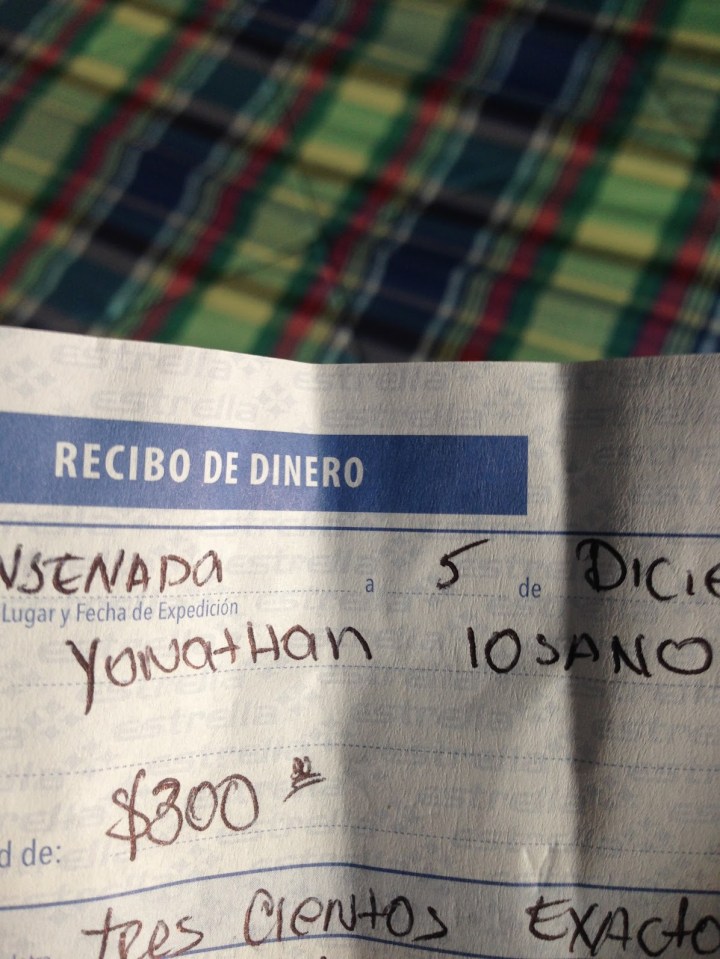 RECIBO DE DINERO
NSENADA a 5 de DICIE
Lugar y Fecha de Expedición
YONAtHAN IOSANO
$300 00
d de:
tres CIENtOS EXACtO